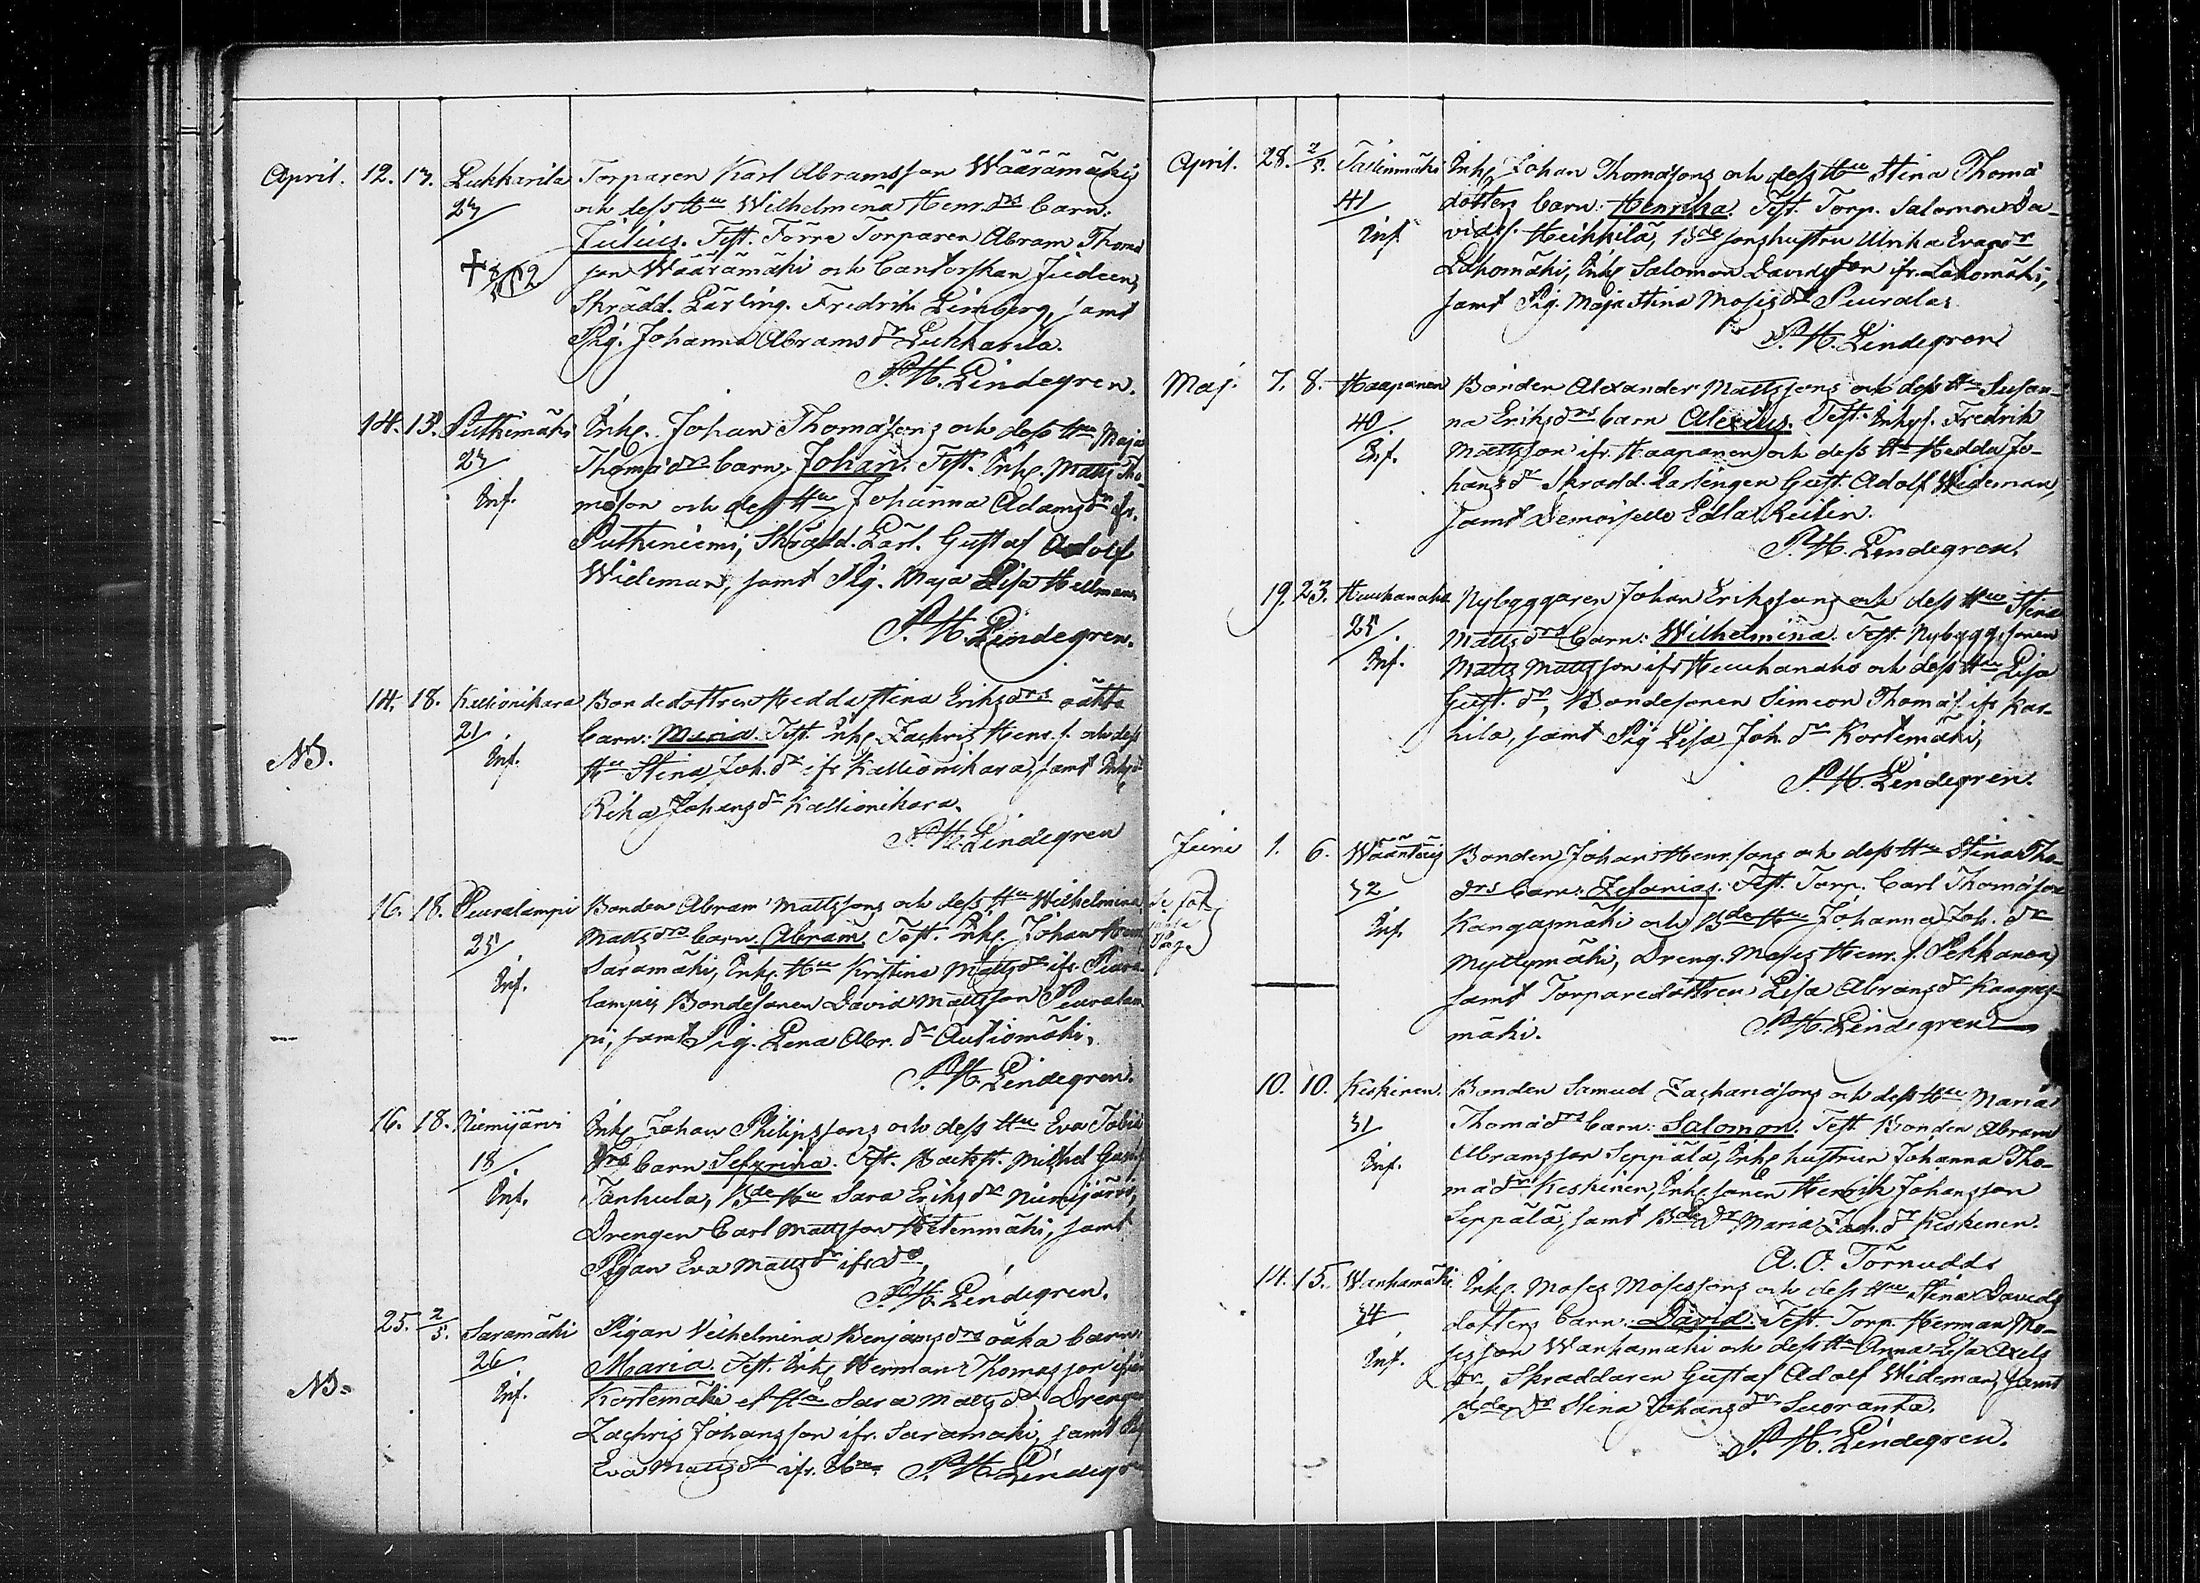 April. 12. 17. Lukkarila Torparen Karl Abramsson Wäärämäkis
27/ och dess Hu Wilhelmina Henr.drs barn:
Julius. Test. Förre Torparen Abram Thoma
son Wäärämäki och Cantorskan Judeen,
Skrädd. Lärling. Fredrik Limberg, samt
Pig. Johanna Abramsdr Lukkarila.
P.H. Lindegren.
14. 18. Putkimäki Inh. Johan Thomassons och dess Hu Maja
27/ Thomædrs barn, Johan. Test. Inh. Matts Tho-
Inf. masson och dess Hu Johanna Adamsdr ifr.
Putkiniemi, Skrädd. Lärl. Gustaf Adolf
Wideman, samt Pig. Maja Lisa Hellman.
P.H. Lindegren.
14. 18. Kallionikara Bondedottren Hedda Stina Eriksdrs oäkta
21/ barn: Maria. Test. Inh. Zachris Henr.s. och dess
NB. Inf. Hu Stina Joh.dr ifr Kallionikara, samt
Rika Johansdr Kallionikara.
P.H. Lindegren
16. 18. Peuralampi Bonden Abram Mattssons och dess Hu Wilhelmina
25/ Mattsdrs barn Abram. Test. Inh. Johan Henr.
Inf. Saramäki, Inh. Hu Kristina Mattsdr ifr. Peura-
lampi, Bondesonen David Mattsson Peuralam-
pi, samt Pig. Lena Abr.dr Autiomäki.
P.H. Lindegren.
16. 18. Niemijärvi Inh. Johan Philipssons och dess Hu Eva Tobia
18/ drs barn Sefrina. Test. Mikhel
Inf. Tankula, Bde Hu Sara Eriksdr Niemijärvi,
Drengen Carl Mattsson Hetenmäki, samt
Pigan Eva Mattsdr ifr do.
P.H. Lindegren.
25. 2/5. Saramäki Pigan Vilhelmina Benjamsdrs oäkta barn:
26 Maria. Test. Inh. Herman Thomasson ifrån
NB. Inf. Kortemäki et Hu Sara Mattsdr Drengen
Zachris Johansson ifr. Saramäki, samt Pig
Eva Mattsdr ifr. P.H. Lindegr
April. 28. 2/5. Inh. Johan Thomassons och dess Hu Stina Thomæ
41 dotters barn: Henrika. Test. Torp. Salomon Da-
Inf. vids. Heikkilä, Bde sonshustru Ulrika Evasdr
Lahomäki, Inh. Salomon Davidsson ifr. Lahomäki,
samt Pig. Maja Stina Mosisdr Peurala.
P.H. Lindegren
Maj. 7. 8. Haapanen Bonden Alexander Mattssons och dess Hu Susan-
40. na Eriksdrs barn Alexius. Test. Inhys. Fredrik
Inf. Mattsson ifr. Haapanen och dess Hu Hedda Jo-
hansdr Skrädd. Lärlingen Gust. Adolf Wideman,
samt Demoiselle Edla Reilin.
P.H. Lindegren.
19. 23. Huuhanaho Nybyggaren Johan Erikssons och dess Hu Stina
25/ Mattsdrs barn: Wilhelmina. Test. Nybyggesonen
Inf. Matts Mattsson ifr Huuhanaho och dess Hu Lisa
Gust.dr, Bondesonen Simeon Thomas. ifr Kar-
hila, samt Pig Lisa Joh.dr Kortemäki,
P.H. Lindegren.
Juni 1. 6. Bonden Johan Henr.sons och dess Hu Stina Tho-
32 drs barn: Zefanias. Test. Torp. Carl Thomasson
Inf. Kangasmäki och Bde Hu Johanna Joh.dr
Myllymäki, Dreng. Moses Henr.s. Pekkanen,
samt Torparedottren Lisa Abramsdr Kangas-
mäki. P.H. Lindegren
10. 10. Keskinen. Bonden Samuel Zachariassons och dess Hu Maria
31 Thomædrs barn: Salomon. Test. Bonden Abram
Inf. Abramsson Seppälä, Inh. hustrun Johanna Tho-
mædr Keskinen, Inh. sonen Henrik Johansson
Seppälä, samt Bde Dr Maria Zach.dr Keskinen.
A. O. Törnudd.
14. 15. Wanhamäki Inh. Moses Mosessons och dess Hu Stina Davids
34 dotters barn: David. Test. Torp. Herman Mo-
Inf. sesson Wanhamäki och dess Hu Anna Lisa Axels
dr, Skräddaren Gustaf Adolf Wideman, samt
Bde Dr Stina Johansdr Suoranta.
P.H. Lindegren.